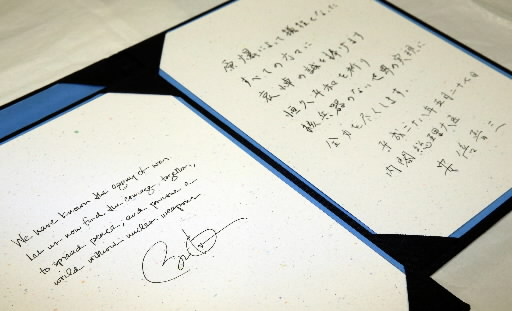 We have known the agony of war.
Let us now find the courage, together,
to spread peace, and pursue a
world without nuclear weapons.
原爆によって犠牲となった
すべての方々に
哀悼の誠を捧げます
恒久平和を祈り
核兵器のない世界の実現に
全力を尽くします。
平成二十八年五月二十七日
内閣総理大臣
安倍晋三